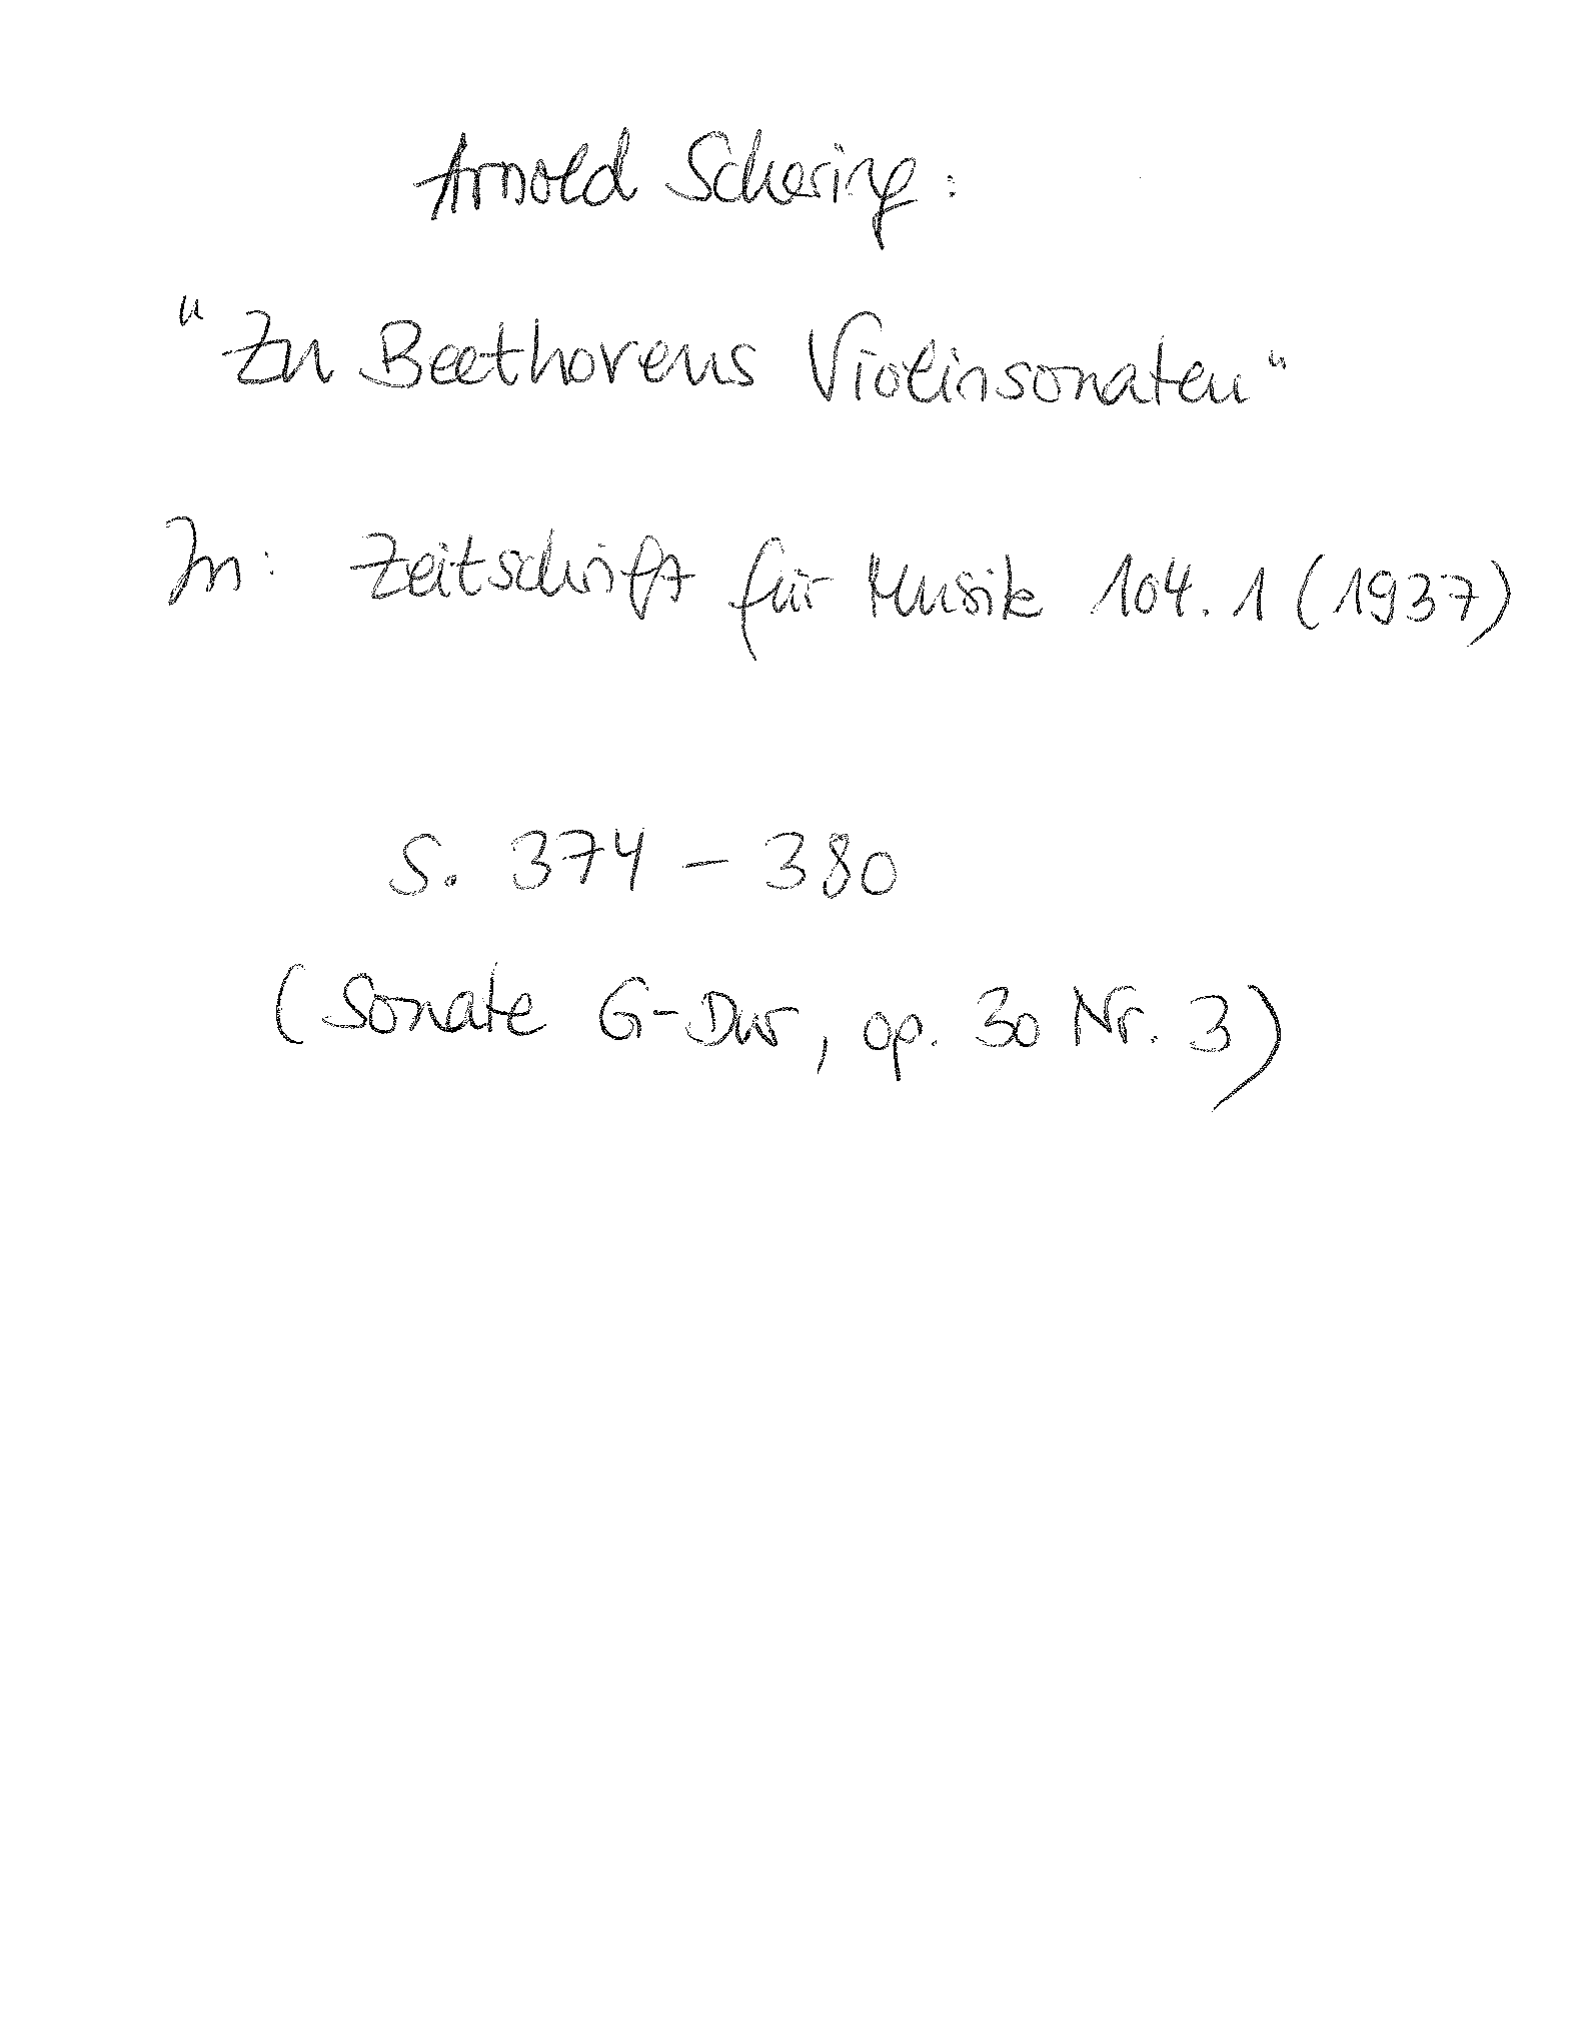 Arnold Schering:
"Zu Beethovens Violinsonaten"
In: Zeitschrift für Musik 104.1 (1937)
S. 374 - 380
(Sonate G-Dur, op. 30 Nr. 3)